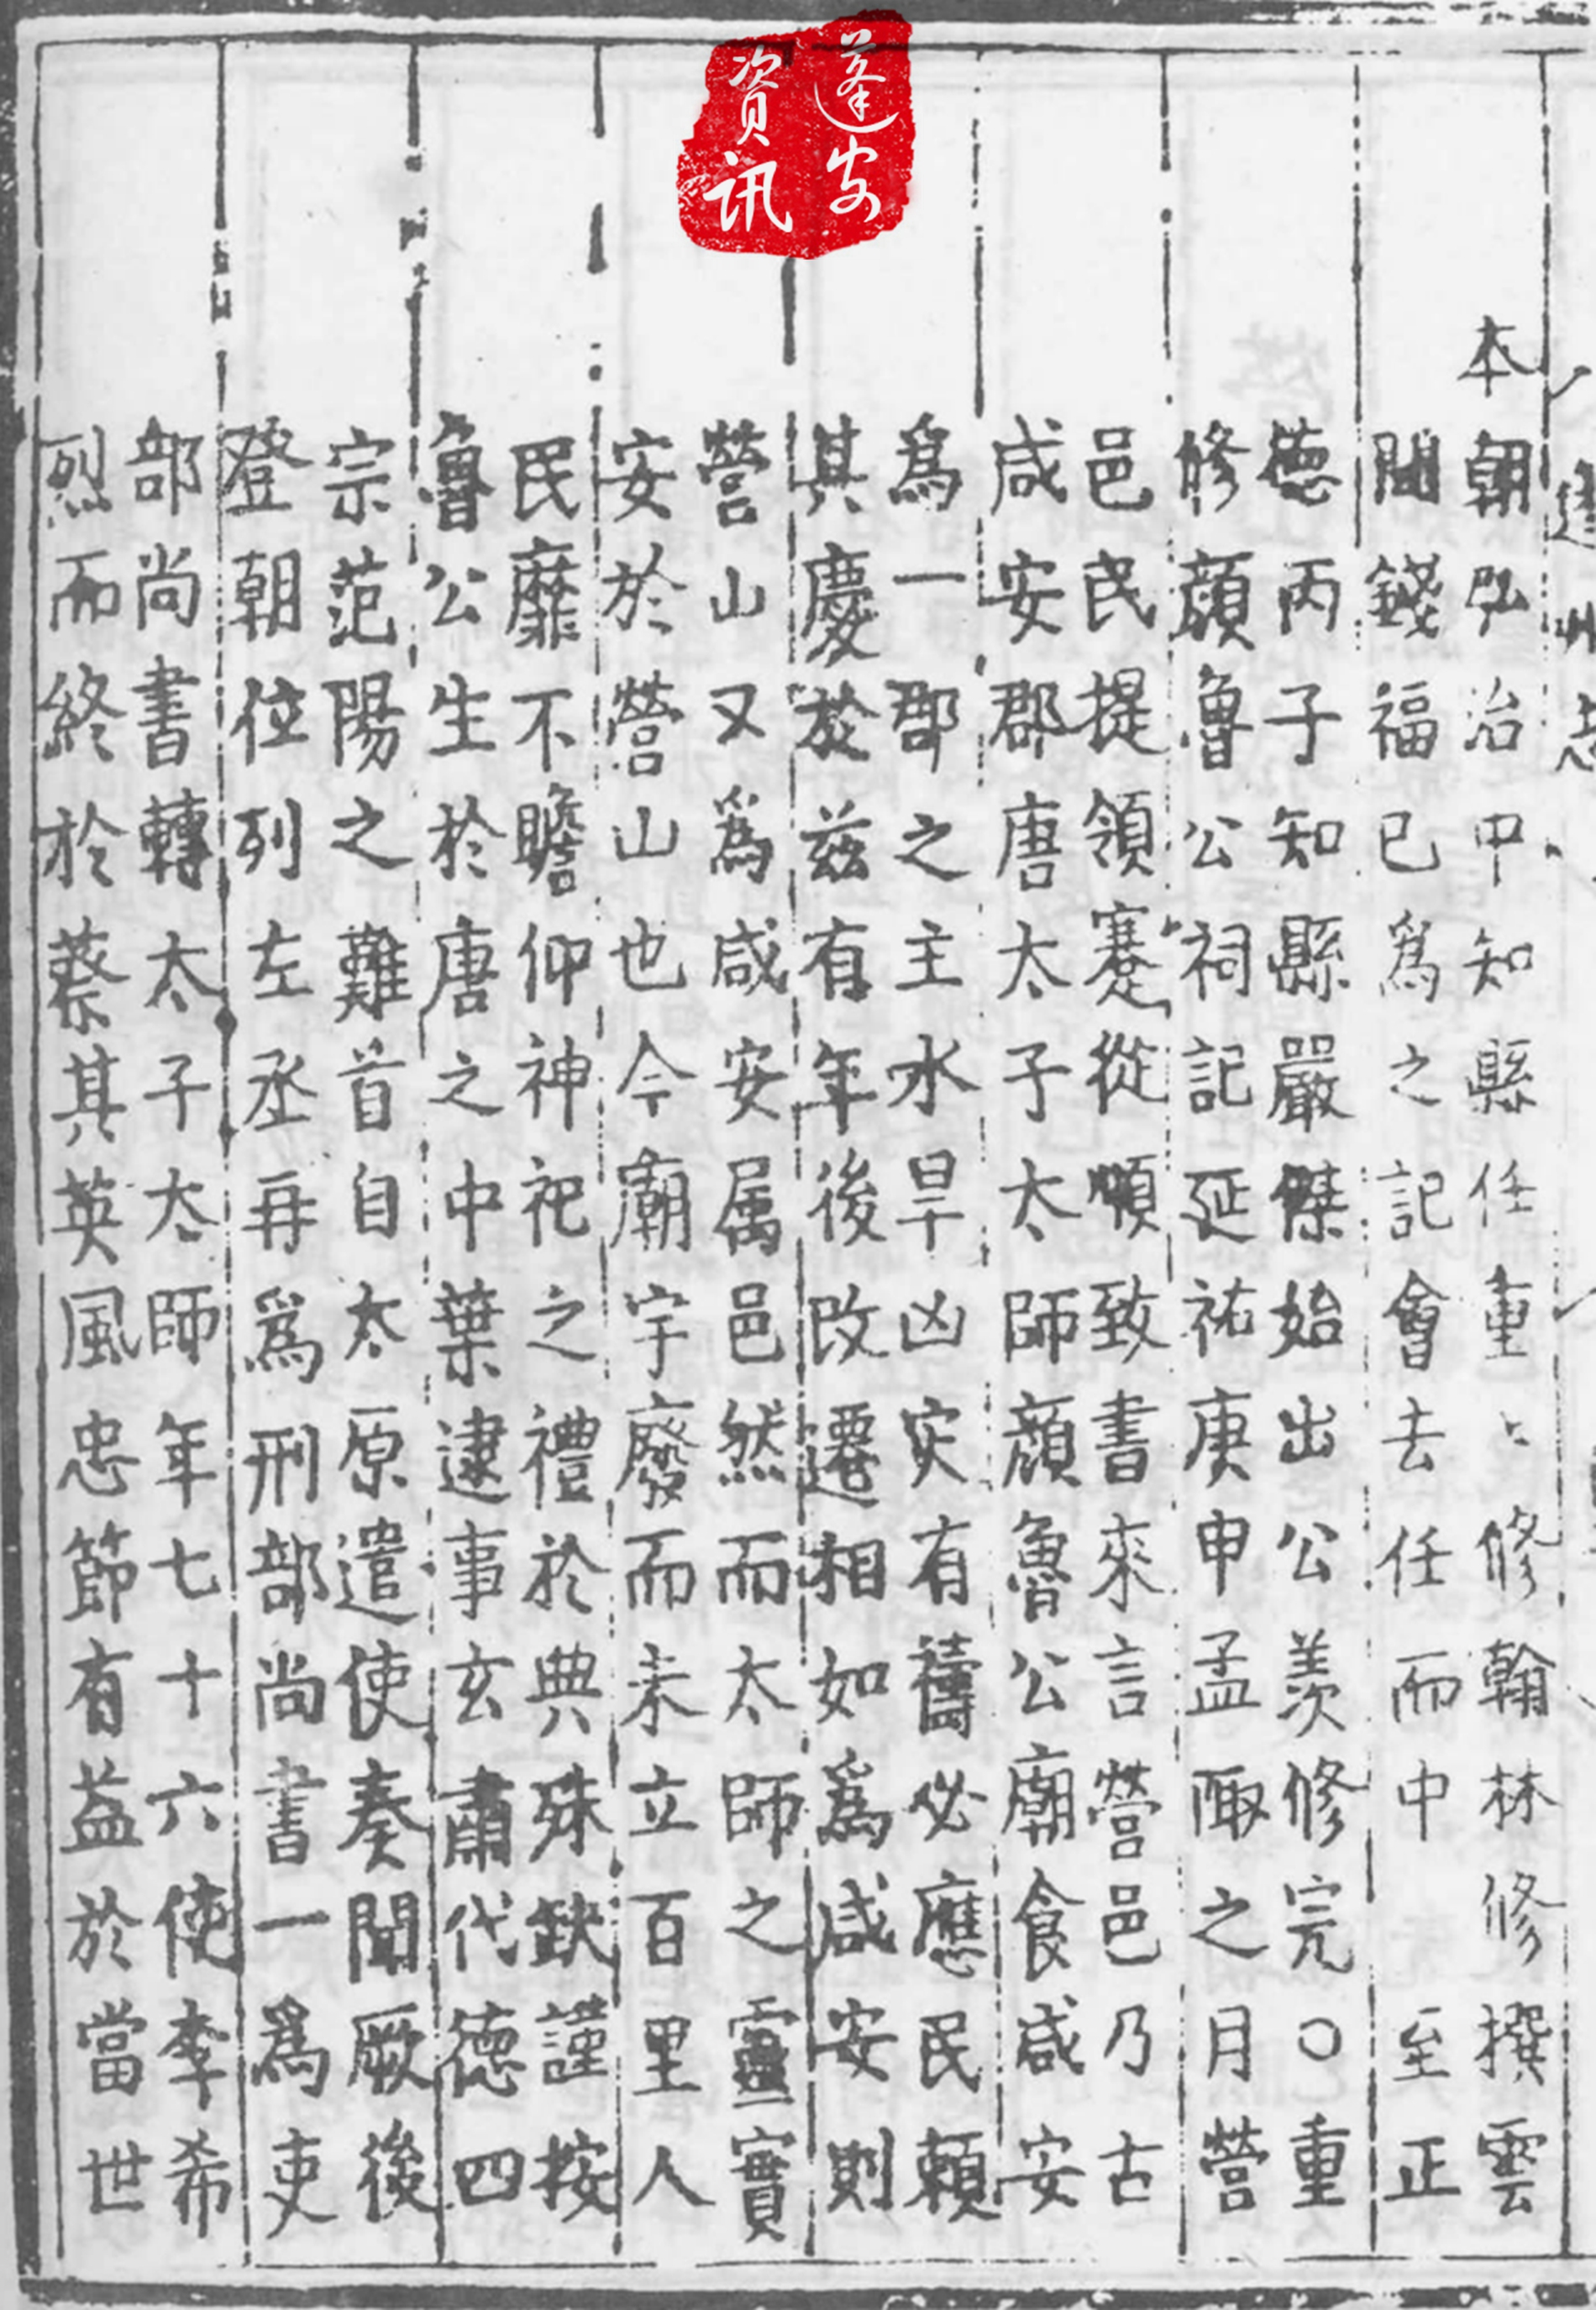 蓬安
資訊
蓬州志
本朝弘治中知縣任重〻修翰林修撰雲
間錢福已爲之記會去任而中 至正
德丙子知縣嚴傑始出公羨修完〇重
修顔魯公祠記延祐庚申孟陬之月營
邑民提領蹇從順致書來言營邑乃古
咸安郡唐太子太師顔魯公廟食咸安
爲一郡之主水旱凶灾有禱必應民賴
其慶於兹有年後改遷相如爲咸安則
營山又爲咸安属邑然而太師之靈實
安於營山也今廟宇廢而未立百里人
民靡不瞻仰神祀之禮於典殊缺謹按
魯公生於唐之中葉逮事玄肅代德四
宗范陽之難首自太原遣使奏聞厥後
登朝位列左丞再爲刑部尚書一爲吏
部尚書轉太子太師年七十六使李希
烈而終於蔡其英風忠節有益於當世